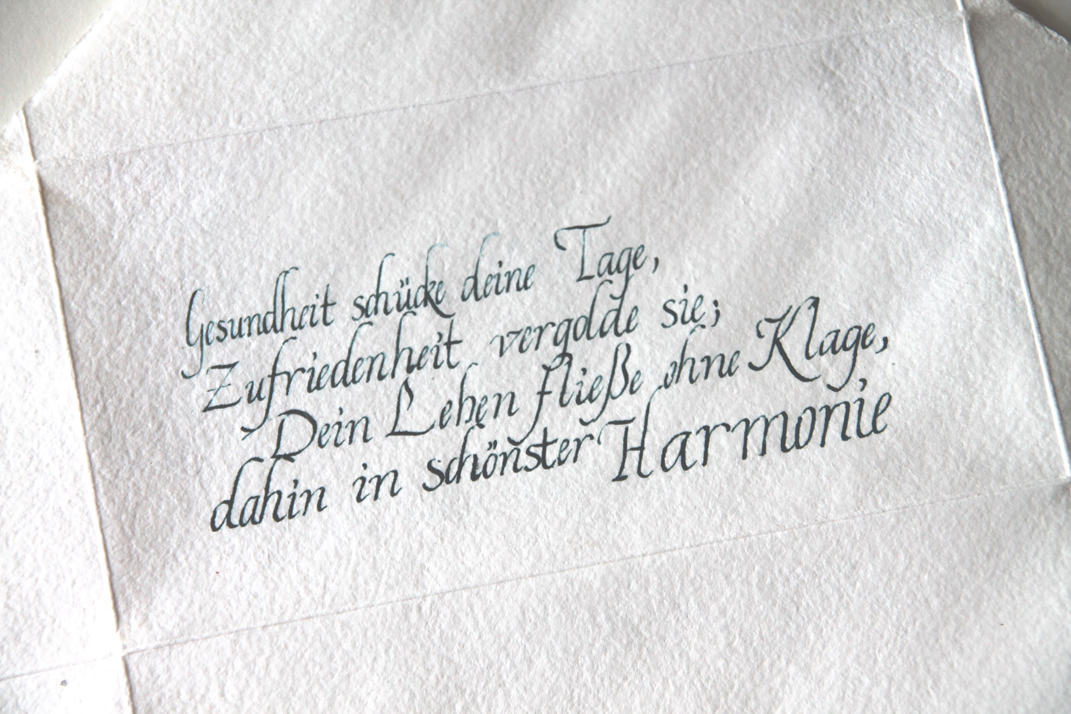 Gesundheit schücke deine Tage,
Zufriedenheit vergolde sie;
Dein Leben fließe ohne Klage,
dahin in schönster Harmonie